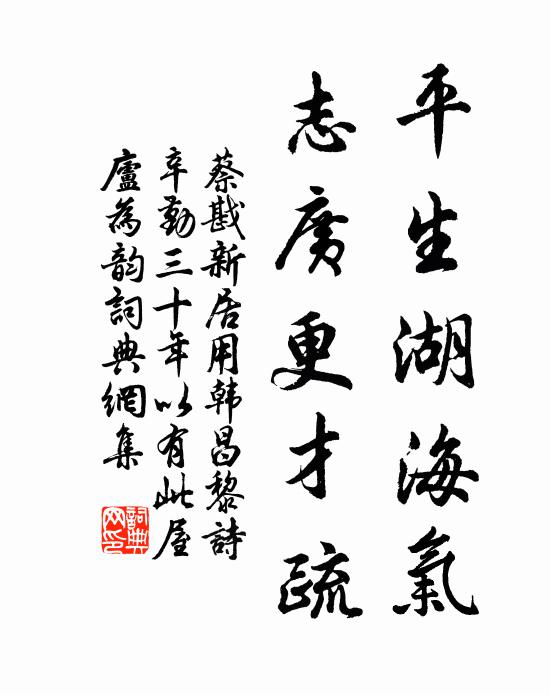 平生湖海氣
志廣更才疏
蔡戡新居用韩昌黎詩
辛勤三十年以有此屋
廬為韵詞典網集
詞典
网印